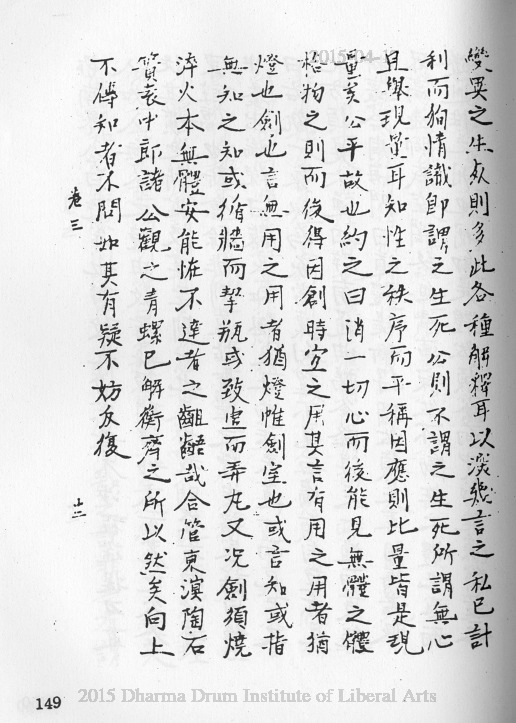 變異之生死則多此各種解釋耳以深幾言之私已計
利而狥情識即謂之生死公則不謂之生死所謂無心
且舉現量耳知性之秩序而平稱因應則比量皆是現
量矣公平故也約之曰消一切心而後能見無體之體
格物之則而後得因創時宜之用其言有用之用者猶
燈也劍也言無用之用者猶燈帷劍室也或言知或指
無知之知或循牆而挈瓶或致虛而弄丸又况劍須燒
淬火本無體安能恠不達者之齟齬哉合管東溟陶石
簣袁中郎諸公觀之青螺已解衝齊之所以然矣向上
不傳知者不問如其有疑不妨反復
卷三
十二
149
2015-04-
2015 Dharma Drum Institute of Liberal Arts